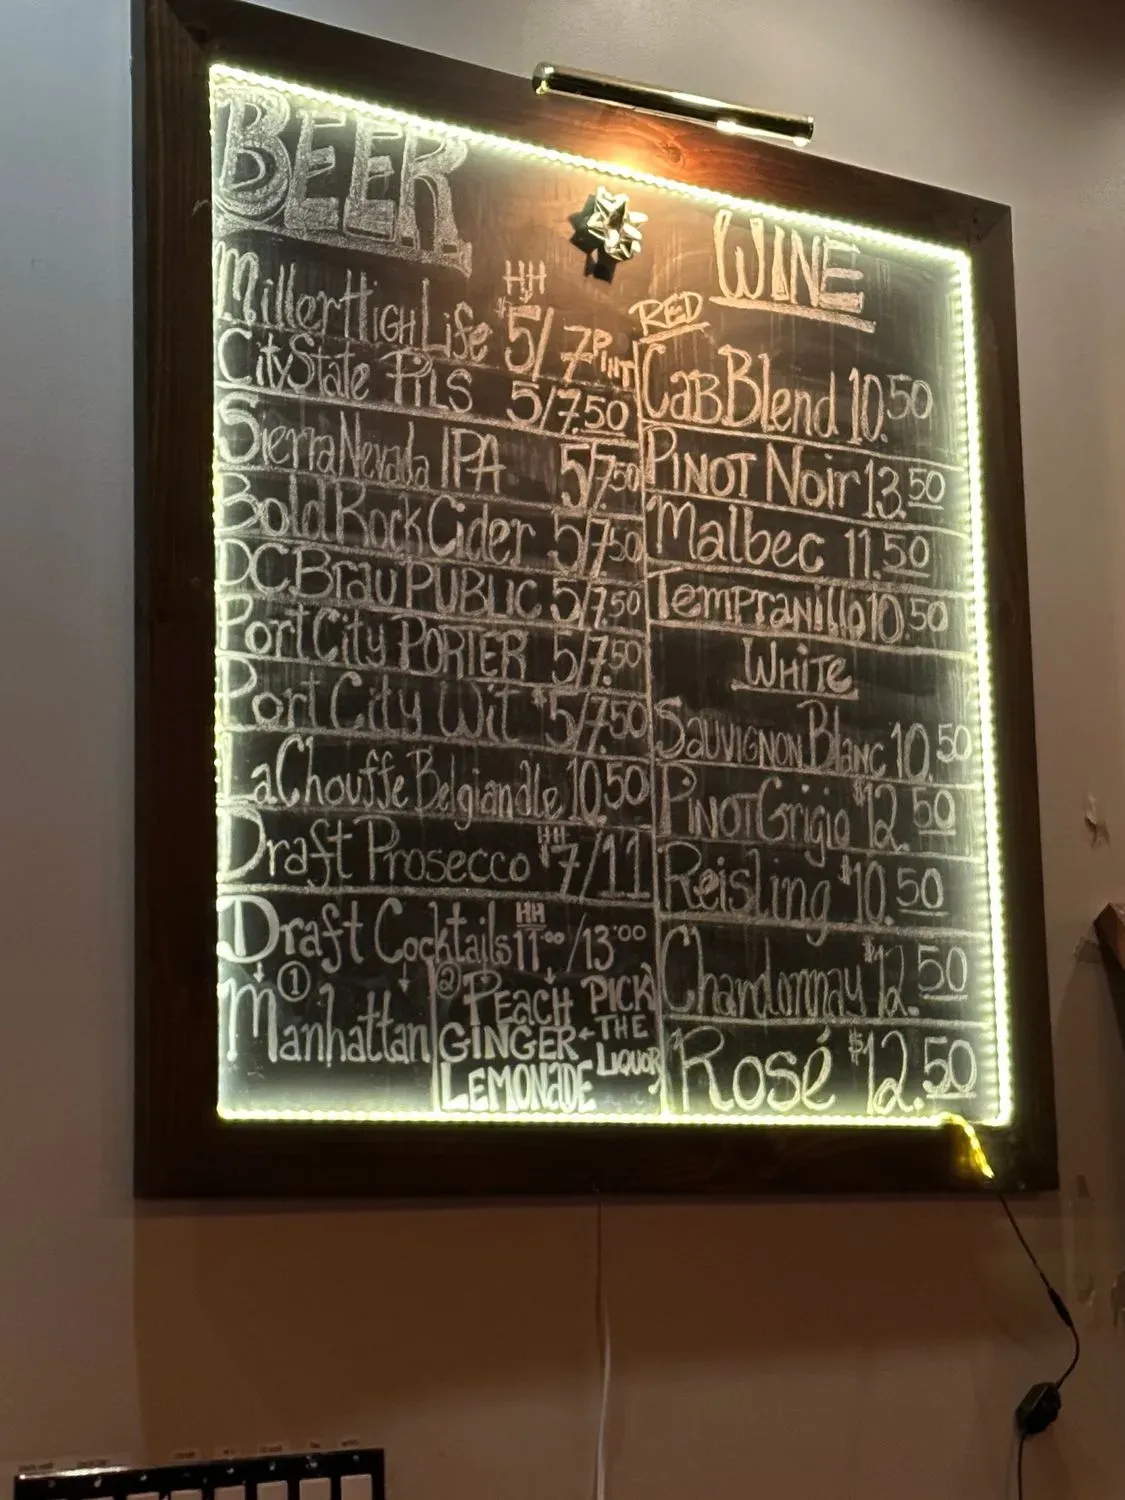 BEER
HH
Miller High Life $5/7 PINT
CityState PILS 5/7.50
Sierra Nevada IPA 5/7.50
Bold Rock Cider 5/7.50
DC Brau PUBLIC 5/7.50
Port City PORTER 5/7.50
Port City Wit $5/7.50
La Chouffe Belgian ale 10.50
HH
Draft Prosecco $7/11
HH
Draft Cocktails 11.00/13.00
① Manhattan
② PEACH
GINGER
LEMONADE
PICK
THE
LIQUOR
WINE
RED
CabBlend 10.50
PINOT Noir 13.50
Malbec 11.50
Tempranillo 10.50
WHITE
SAUVIGNON Blanc 10.50
PINOT Grigio $12.50
Reisling $10.50
Chardonnay $12.50
Rosé $12.50